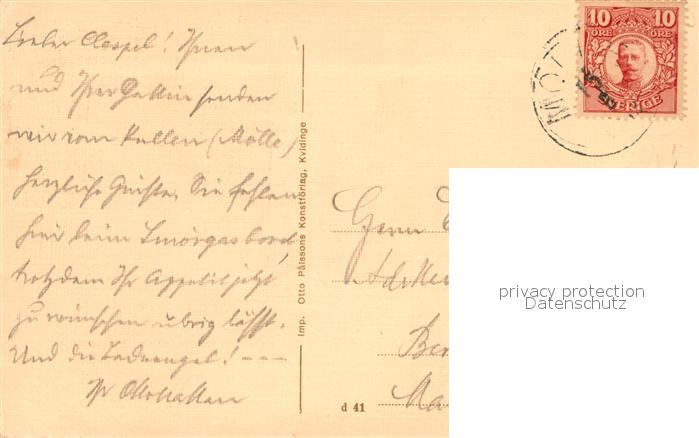 Lieber Cleppel! Ihnen
und Ihrer Gattin senden
wir vom Kullen (Mölle)
herzliche Grüsse. Sie fehlen
hier beim Smörgasbord,
trotzdem Ihr Appetit jetzt
zu wünschen übrig lässt.
Und die Badeengel! ---
Ihr
Imp. Otto Pålssons Konstförlag, Kvidinge
d 41
10 10
ÖRE ÖRE
SVERIGE
MÖL
Herrn
Ber
privacy protection
Datenschutz